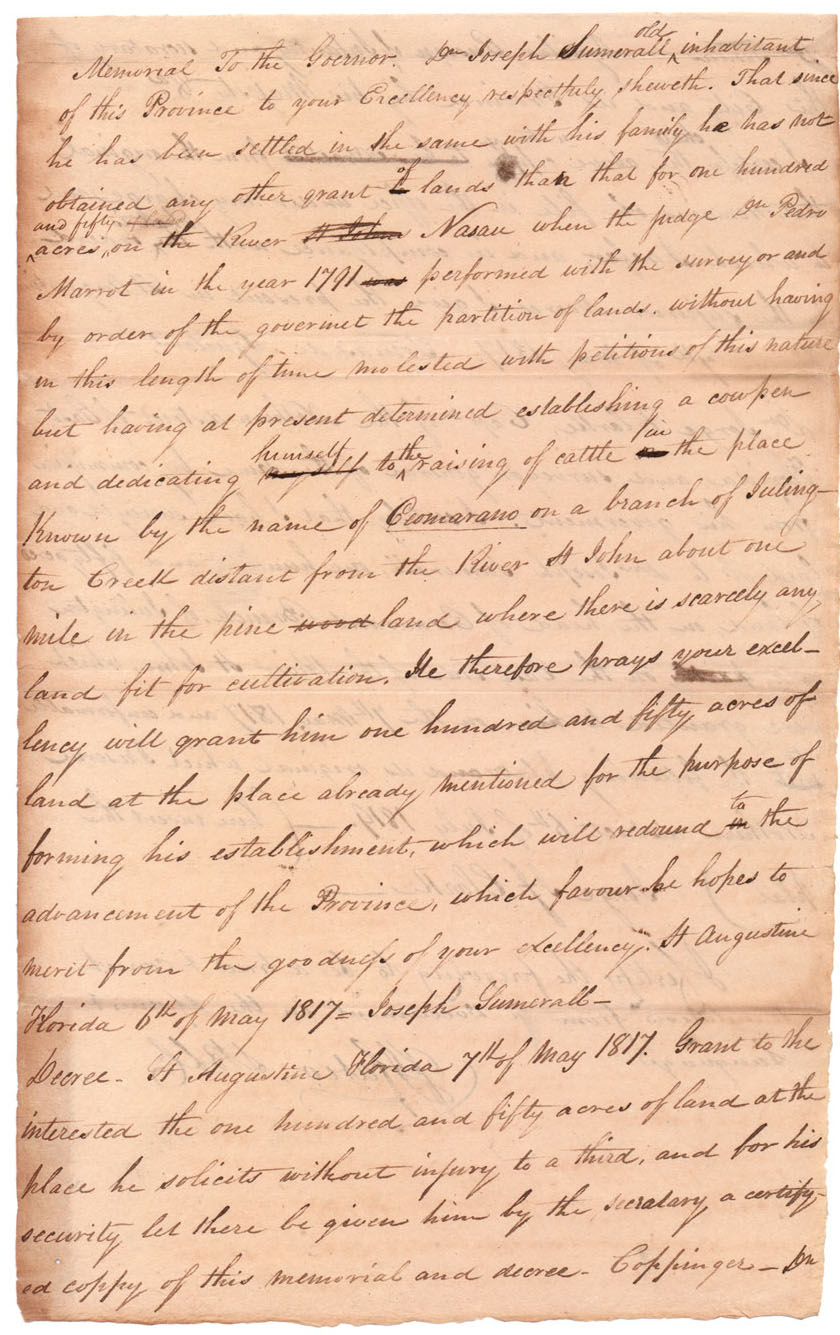 Memorial To the Goernor. Dn Joseph Sumerall old inhabitant
of this Province to your Excellency respectfuly sheweth. That since
he has been settled in the same with his family he has not
obtained any other grant of lands than that for one hundred
and fifty
acres, on the River St Johns Nasau when the judge Dn Pedro
Marrot in the year 1791 was performed with the surveyor and
by order of the govermet the partition of lands. without having
in this length of time molested with petitions of this nature
but having at present determined establishing a cowpen
and dedicating himself to the raising of cattle in the place
Known by the name of Comarano on a branch of Juling-
ton Creek distant from the River St John about one
mile in the pine wood land where there is scarcely any
land fit for cultivation. He therefore prays your excel-
lency will grant him one hundred and fifty acres of
land at the place already mentioned for the purpose of
forming his establishment, which will redound to the
advancement of the Province, which favour he hopes to
merit from the goodness of your excellency. St Augustine
Florida 6th of May 1817 = Joseph Sumerall -
Decree - St Augustine Florida 7th of May 1817. Grant to the
interested the one hundred and fifty acres of land at the
place he solicits without injury to a third, and for his
security let there be given him by the secratary a certify-
ed coppy of this memorial and decree - Coppinger - Dn